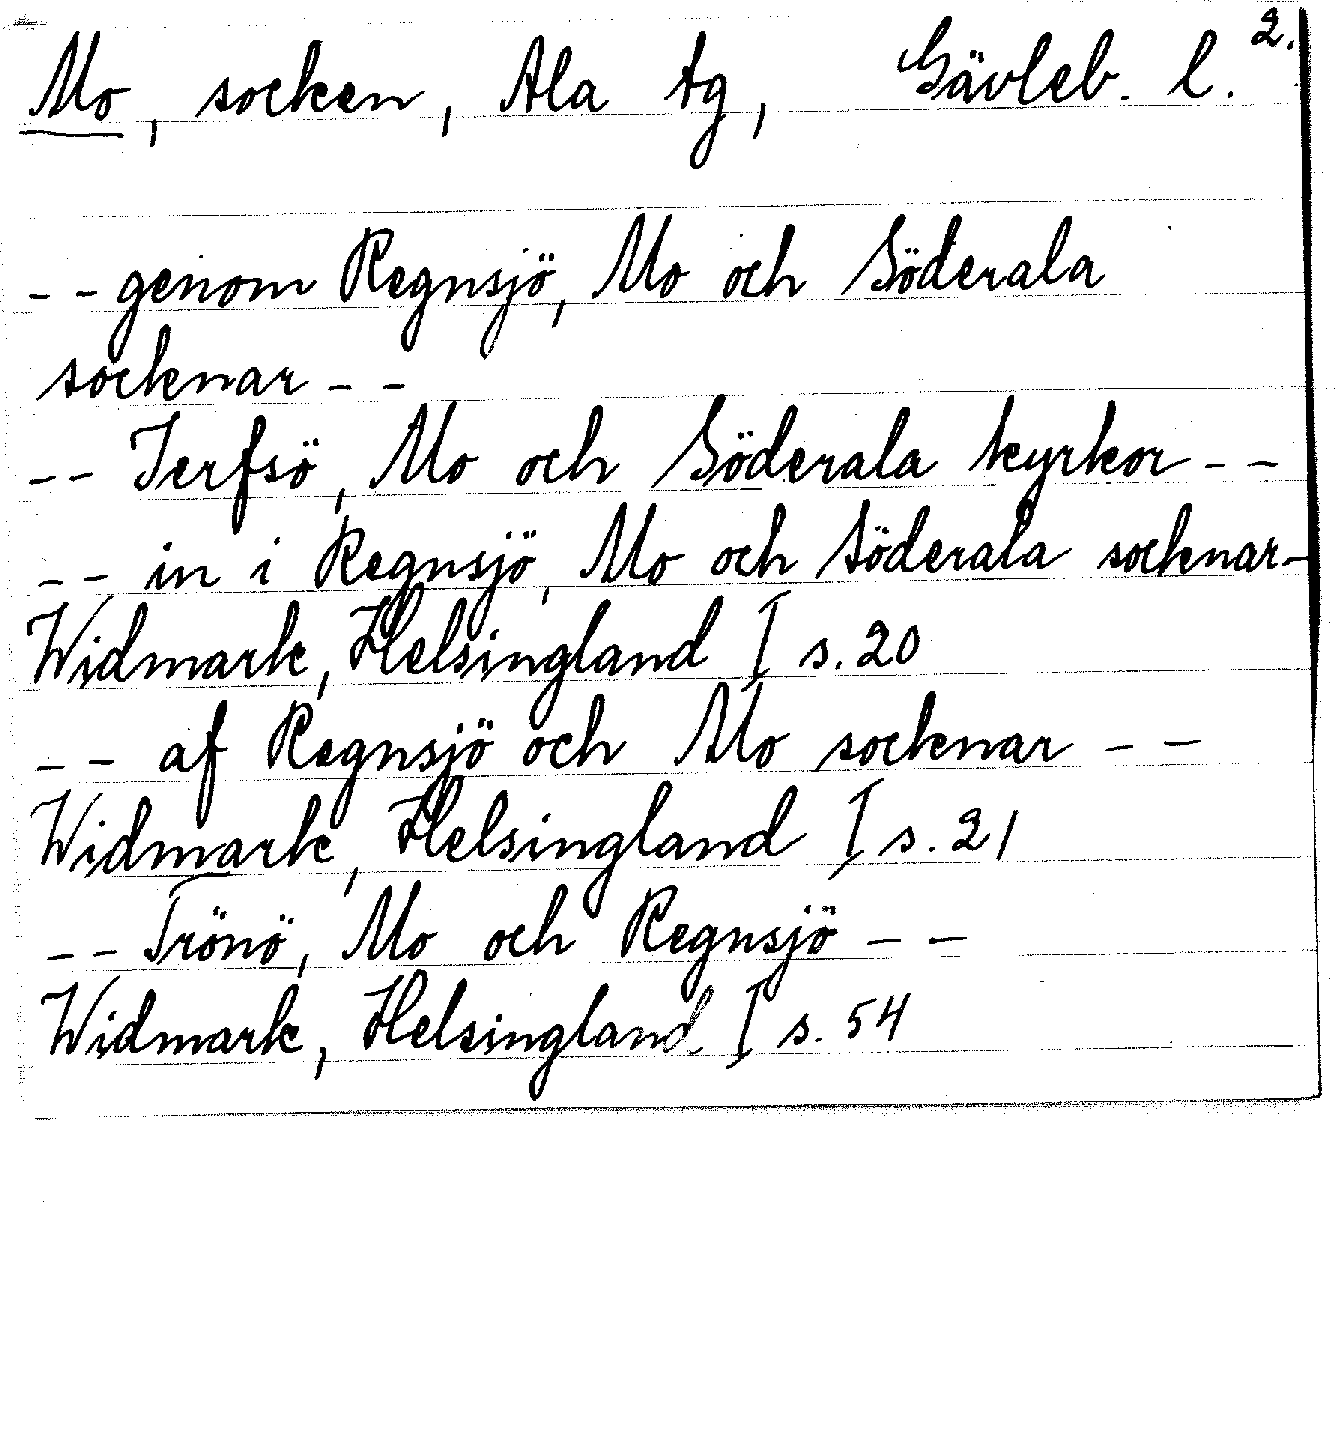 2.
Mo, socken, Ala tg, Gävleb. l.
-- genom Regnsjö, Mo och Söderala
socknar --
-- Jerfsö, Mo och Söderala kyrkor --
-- in i Regnsjö, Mo och Söderala socknar -
Widmark, Helsingland I s. 20
-- af Regnsjö och Mo socknar --
Widmark, Helsingland I s. 21
-- Trönö, Mo och Regnsjö --
Widmark, Helsingland I s. 54